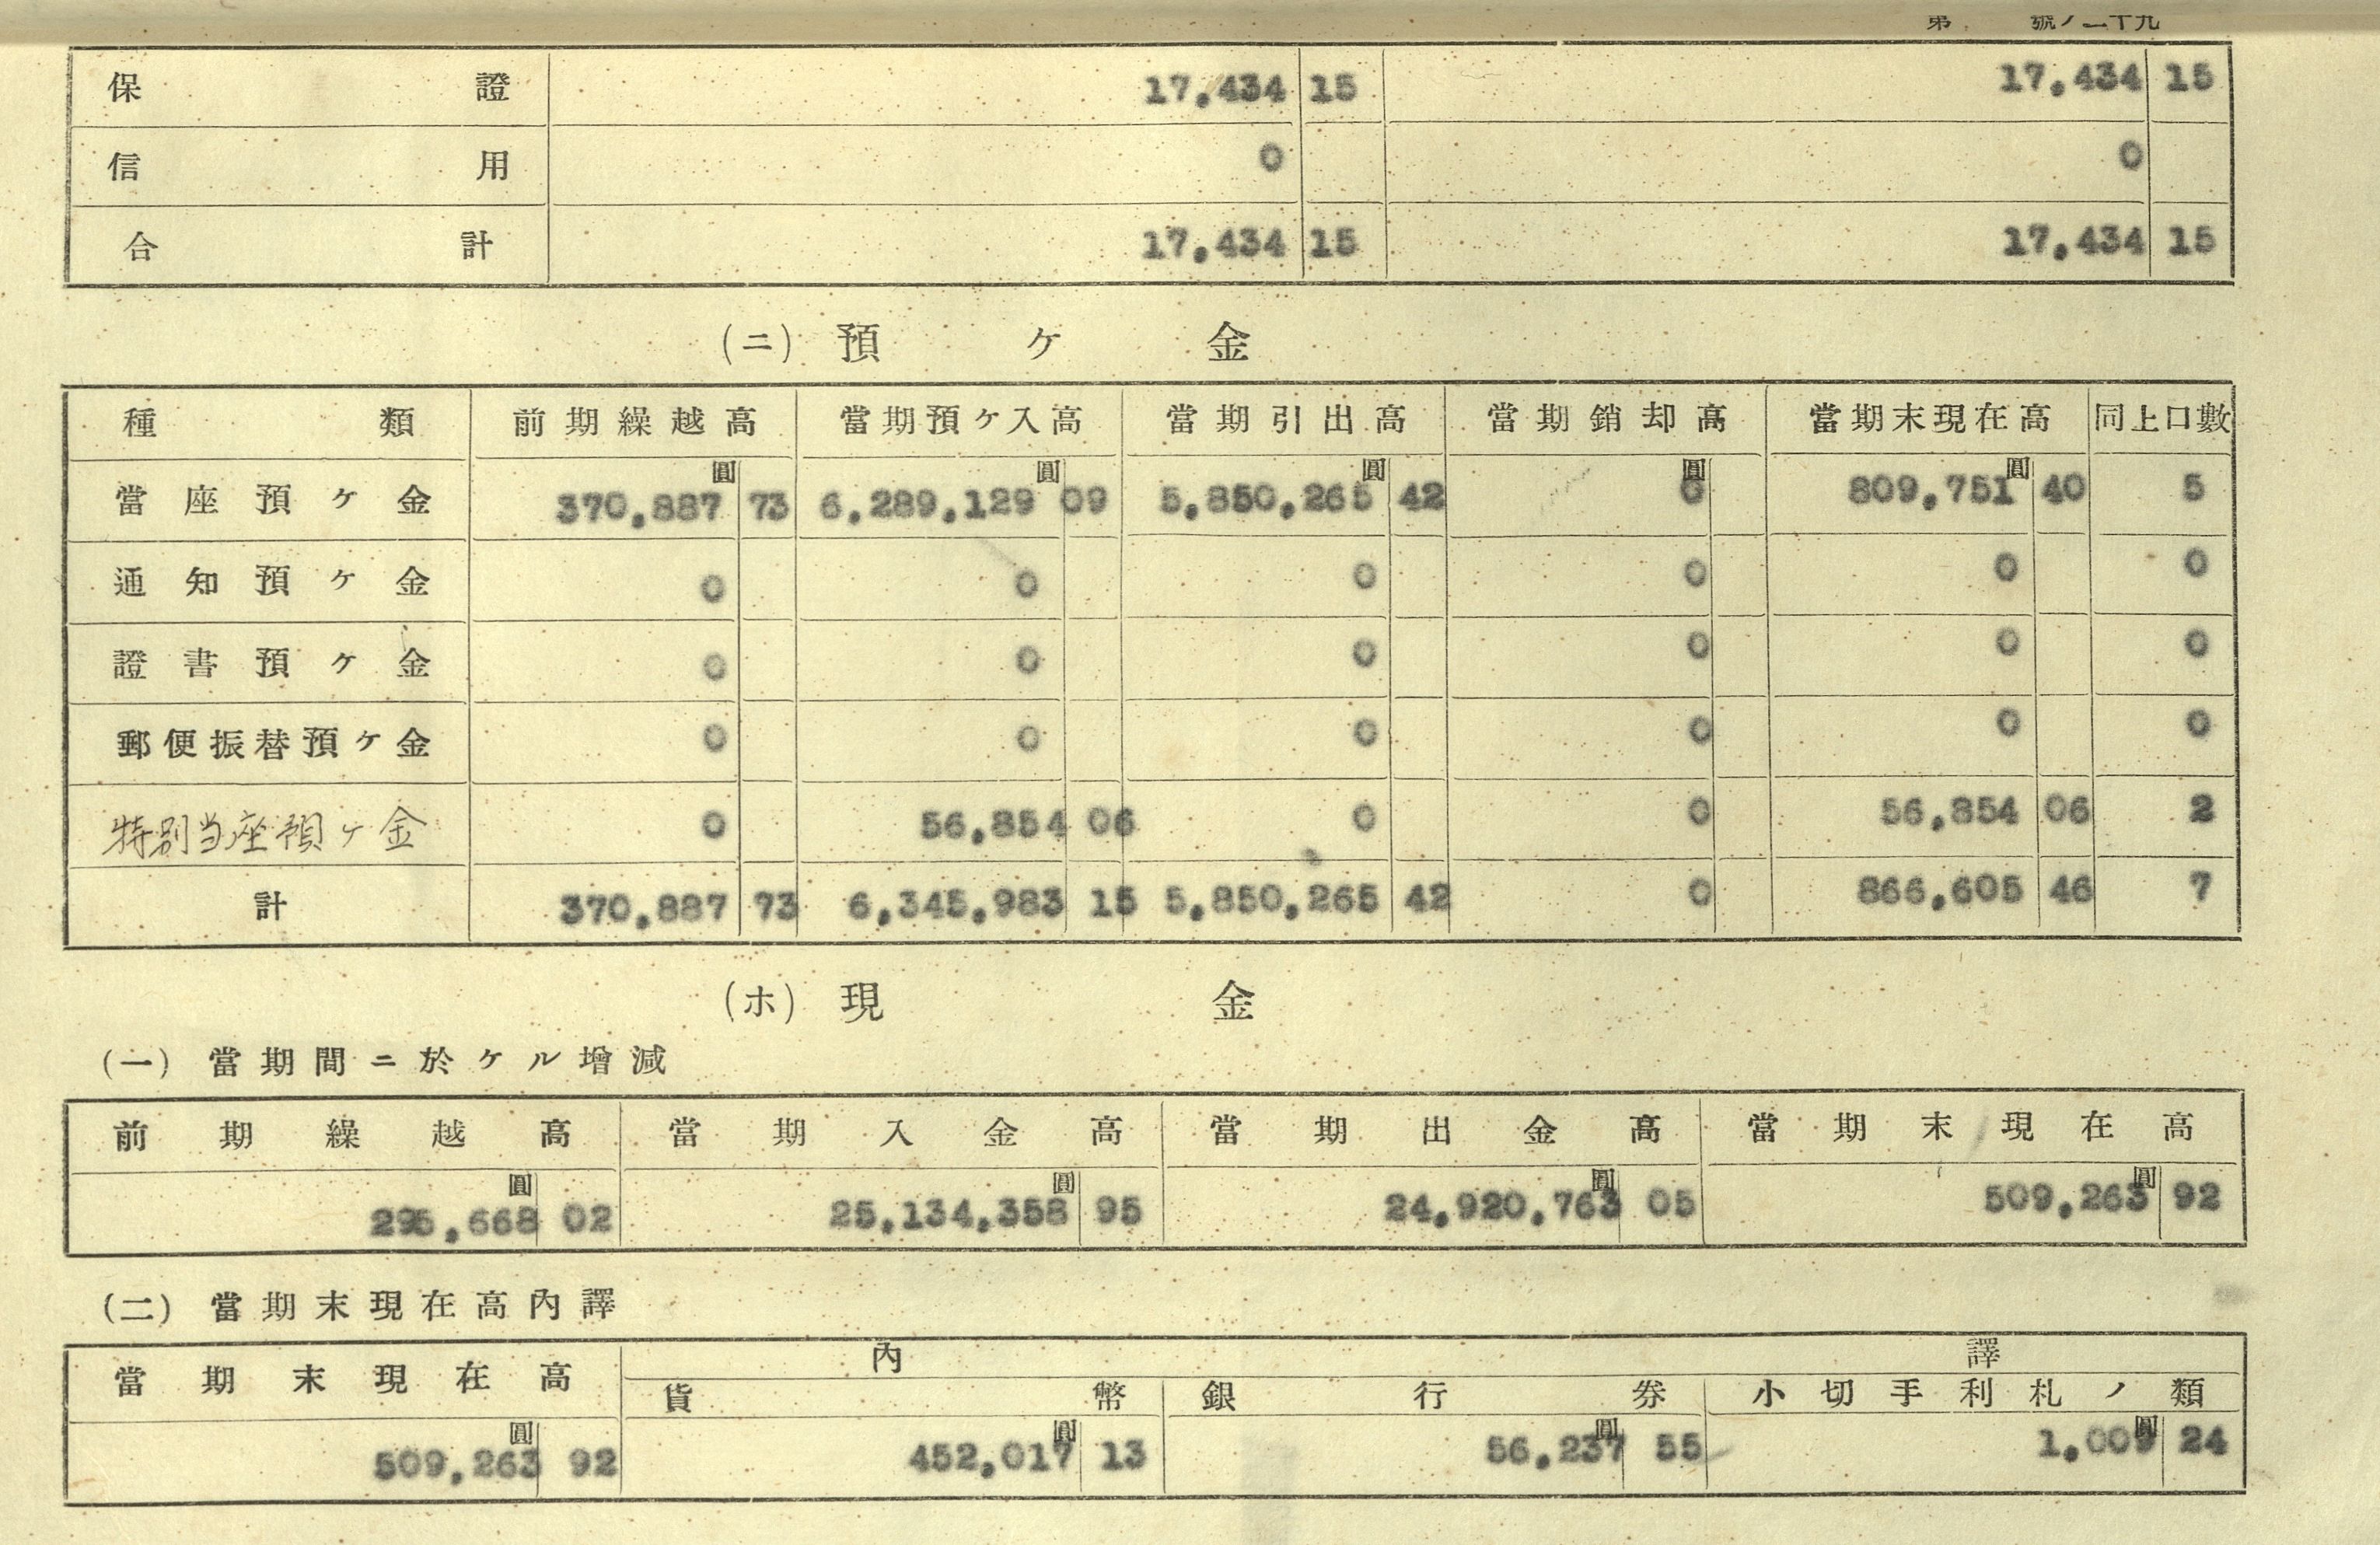 第 號ノ二十九
保證 17,434 15 17,434 15
信用 0 0
合計 17,434 15 17,434 15
(ニ) 預ヶ金
種類 前期繰越高 當期預ヶ入高 當期引出高 當期銷却高 當期末現在高 同上口數
圓 圓 圓 圓 圓
當座預ヶ金 370,887 73 6,289,129 09 5,850,265 42 0 809,751 40 5
通知預ヶ金 0 0 0 0 0 0
證書預ヶ金 0 0 0 0 0 0
郵便振替預ヶ金 0 0 0 0 0 0
特別当座預ヶ金 0 56,854 06 0 0 56,854 06 2
計 370,887 73 6,345,983 15 5,850,265 42 0 866,605 46 7
(ホ) 現金
(一) 當期間ニ於ケル增減
前期繰越高 當期入金高 當期出金高 當期末現在高
圓 圓 圓 圓
295,668 02 25,134,358 95 24,920,763 05 509,263 92
(二) 當期末現在高內譯
當期末現在高 內譯
貨幣 銀行券 小切手利札ノ類
圓 圓 圓 圓
509,263 92 452,017 13 56,237 55 1,009 24